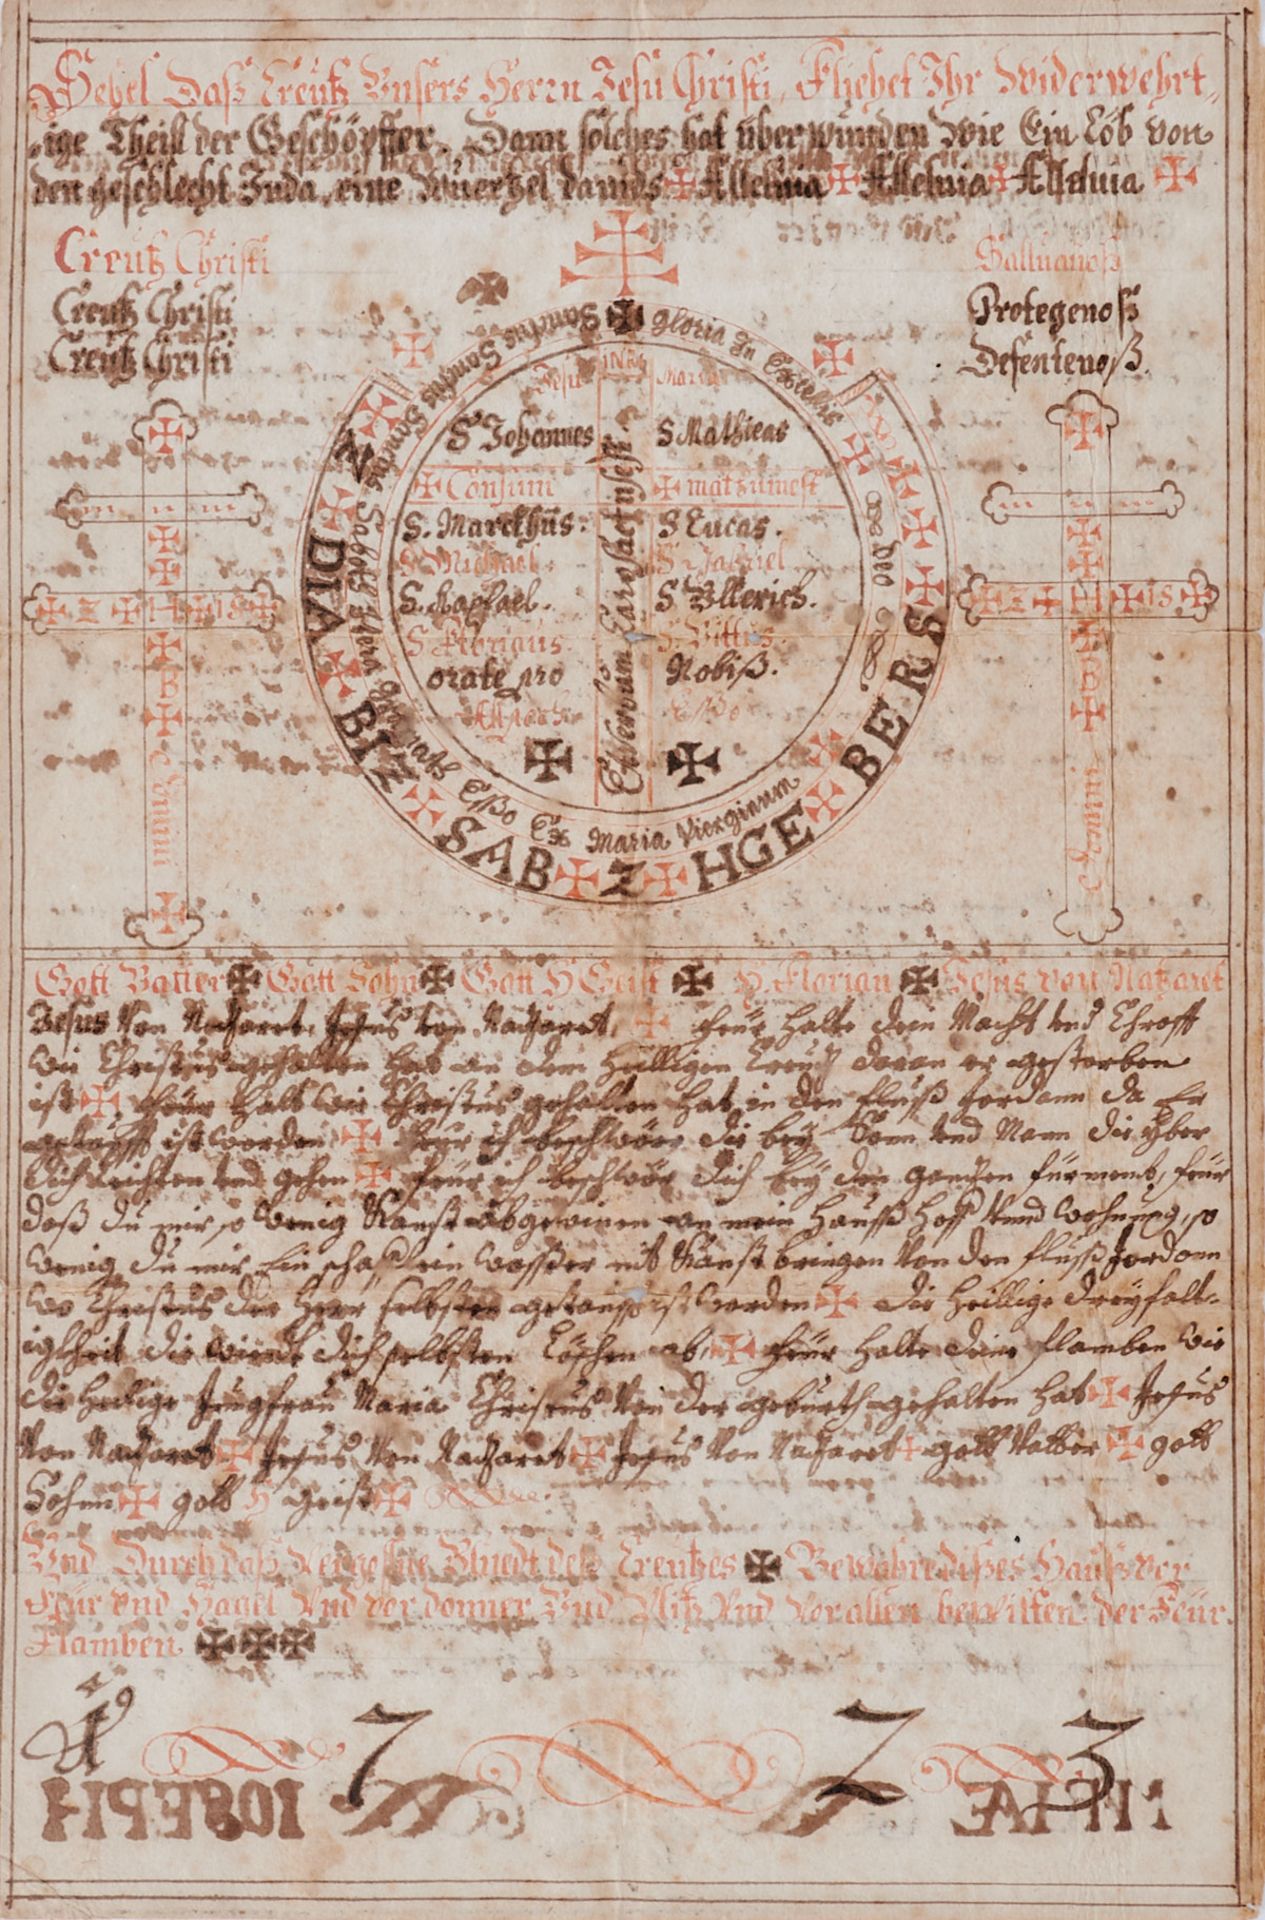 Sehet Daß Creutz Unsers Herrn Jesu Christi, Fliehet Ihr Widerwehrt,,
ige Theill der Geschöpffer. Dann solches hat überwunden Wie Ein Löb von
den geschlecht Juda, eine Wuertzel davids ✠ Alleluia ✠ Alleluia ✠ Alleluia ✠
Creutz Christi
Creutz Christi
Creutz Christi
Saluanoß
Protegenoß
Defentenoß
Sanctus Sanctus Sanctus ✠ gloria In Exelsis
deo
Ex Maria Vierginum
Z ✠ DIA ✠ BIZ ✠ SAB ✠ Z ✠ HGE ✠ BERS
Jesu INRI Maria
S Johannes S Mathieas
✠ Consum ✠ matzumest
S. Marckhus: S Lucas.
S Michael. S Gabriel
S. Raphael. S Ullerich.
S Florianus. S Vittus.
orate pro Nobiß.
✠ Z ✠ H ✠ IS ✠
✠ Z ✠ H ✠ IS ✠
Gott Vatter ✠ Gott Sohn ✠ Gott H Geist ✠ H. Florian ✠ Jesus von Natzaret
Jesus Von Natzaret, Jesus von Natzaret, ✠ feur halte dein Macht und Chrafft
wie Christus gehalten hat an dem heilligen Creutz daran er gestorben
ist ✠ feur halt wie Christus gehalten hat in den fluß Jordann da Er
getaufft ist worden ✠ feur ich beschwöre die bey Sonn und Mann die yber
dich leichten und gehen ✠ feur ich beschwör dich bey den gantzen fürmemb, feur
daß du mir so wenig Kanst abgewinen an mein Hauß Hoff und wohnung, so
wenig du mir Ein schafflein wasser nit Kanst bringen Von den fluß Jordann
wo Christus der Herr selbsten getaufft ist worden ✠ die Heillige dreyfalt-
igkheit die wierdt dich selbsten Löschen ab, ✠ feur halte deine flamben wie
die Heilige Jungfrau Maria Christus Von der geburth gehalten hat ✠ Jesus
Von Natzaret ✠ Jesus Von Natzaret ✠ Jesus Von Natzaret ✠ gott Vatter ✠ gott
Sohn ✠ gott H geist ✠
Und Durch daß Vergossne Bluedt deß Creutzes ✠ Bewahre dißes Hauß vor
Feur und Hagel Und vor donner Und Plitz Und Vor allen bewitten der Feur
Flamben ✠✠✠
1 7 2 3